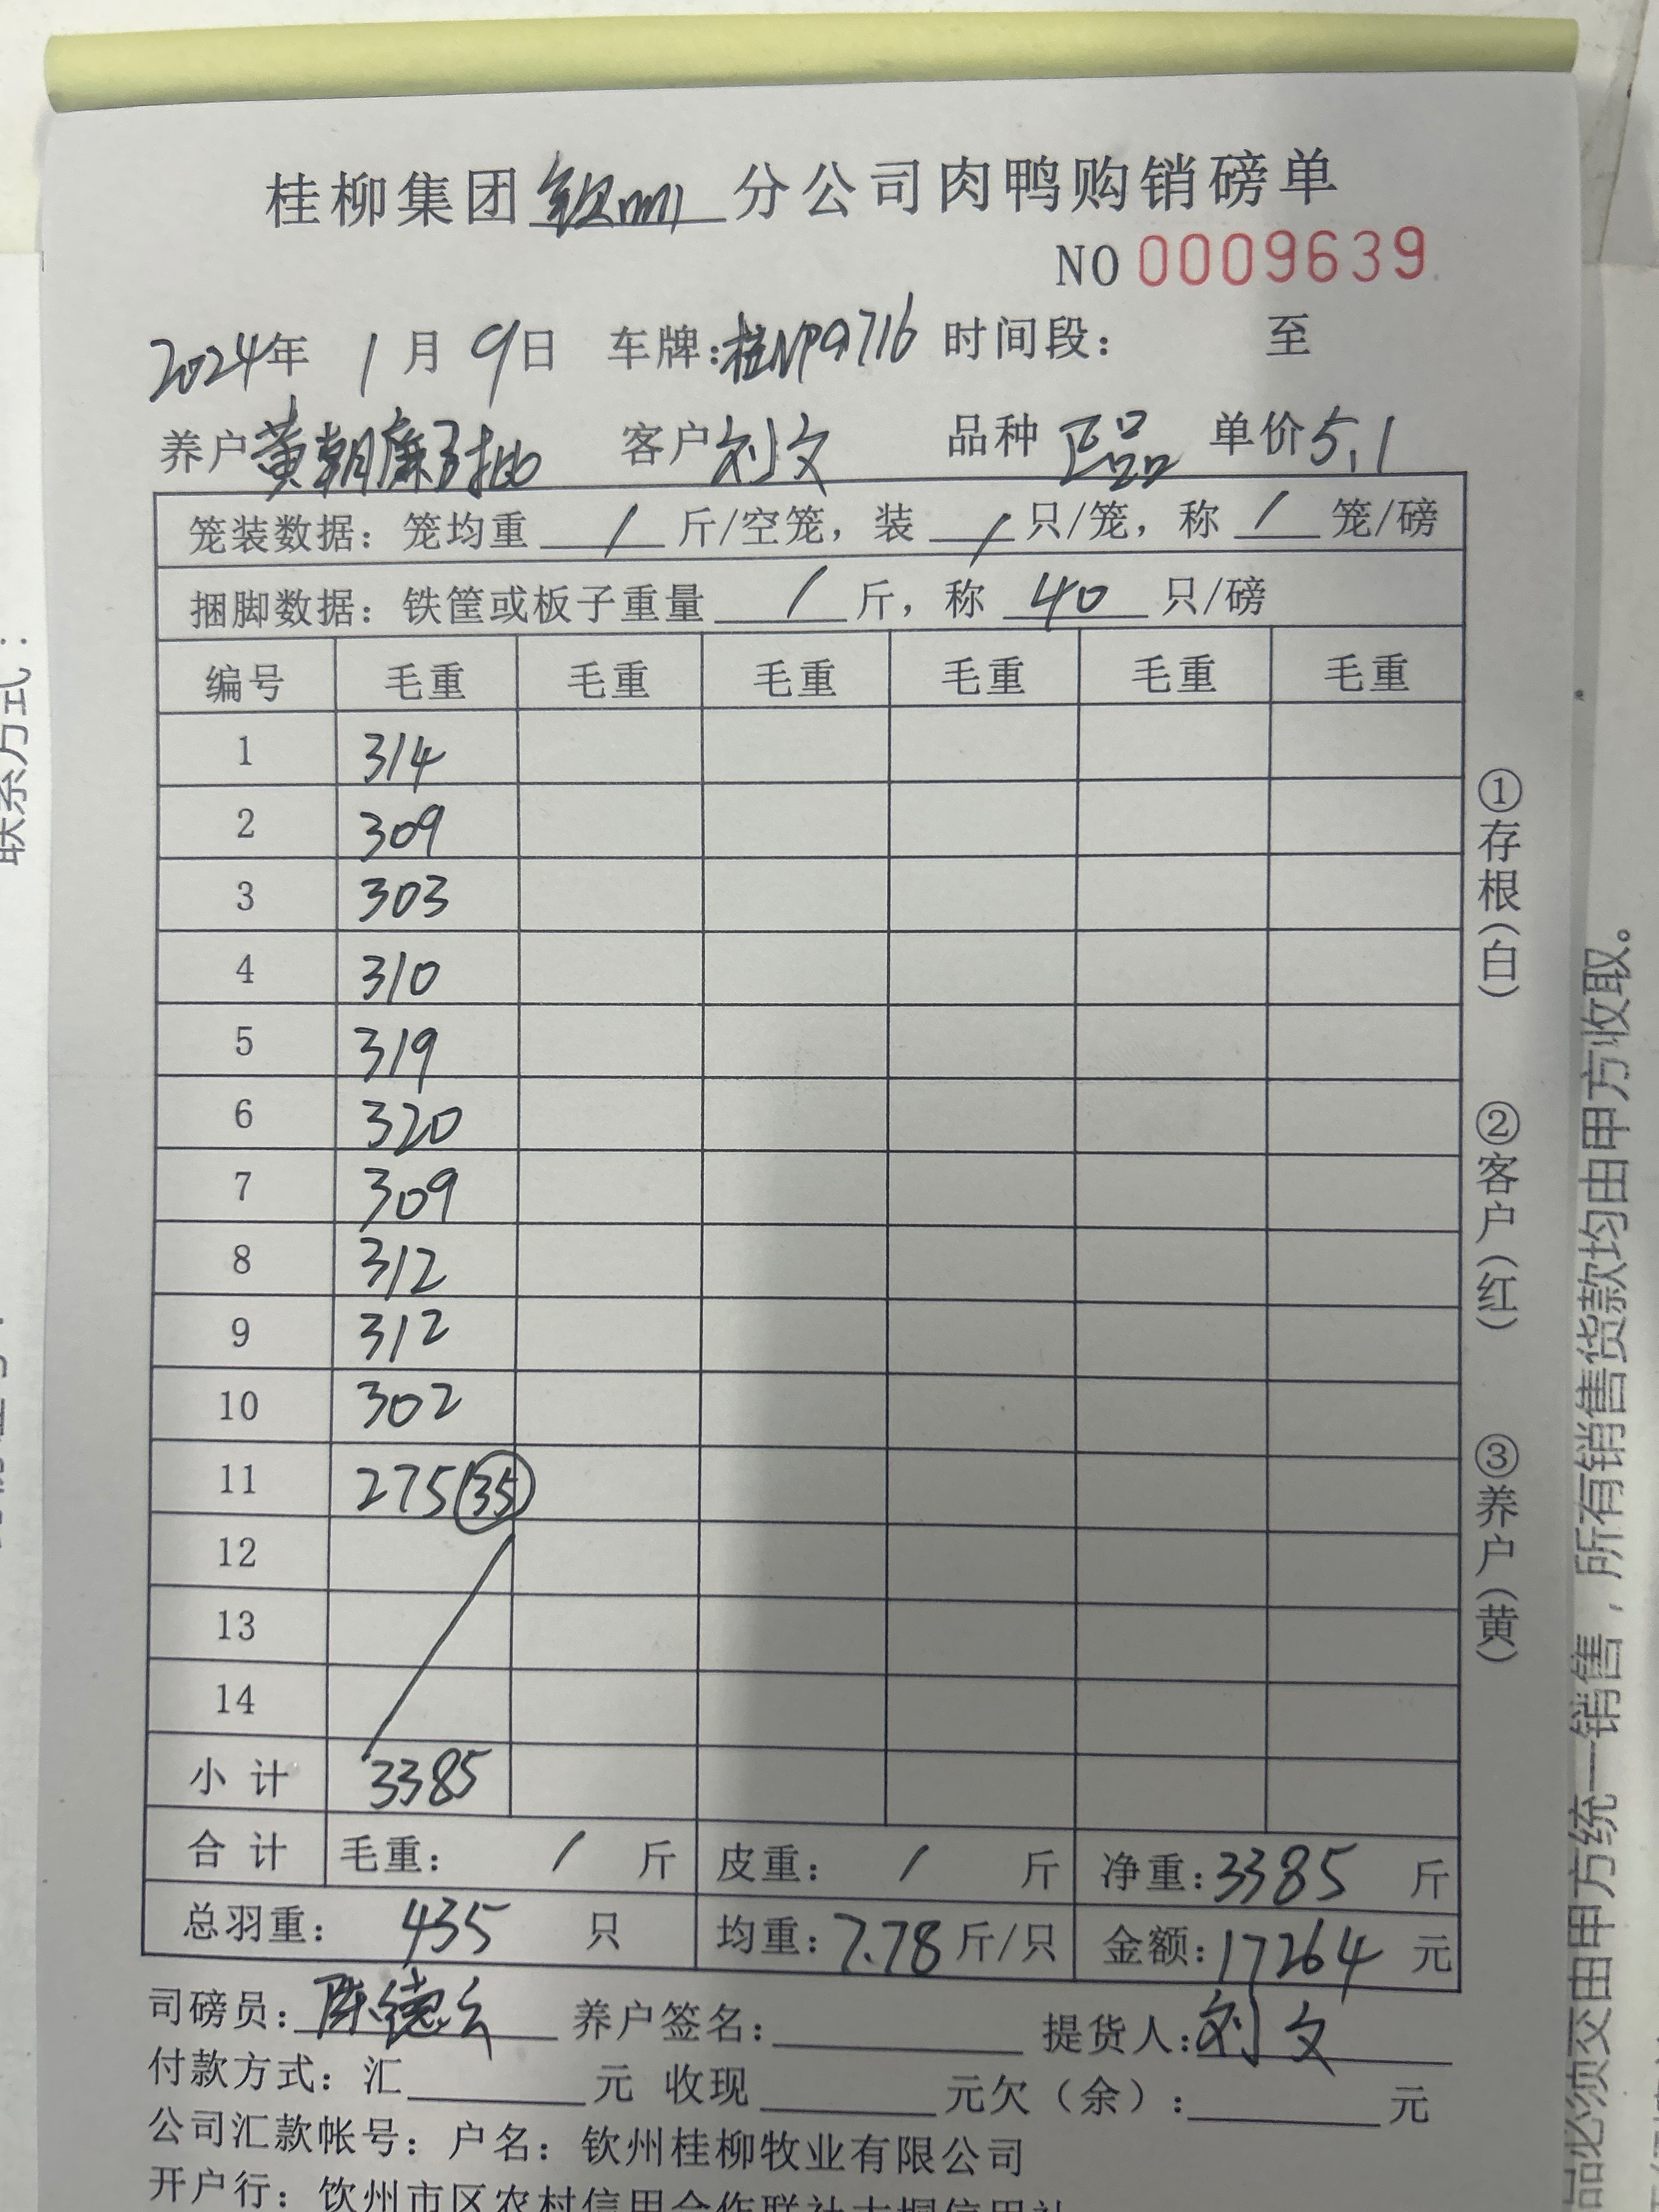 桂柳集团钦州分公司肉鸭购销磅单
NO 0009639
2024年 1月 9日 车牌:桂NP9716 时间段: 至
养户 黄朝廉3批 客户 刘文 品种 正品 单价 5.1
笼装数据: 笼均重 / 斤/空笼, 装 / 只/笼, 称 / 笼/磅
捆脚数据: 铁筐或板子重量 / 斤, 称 40 只/磅
编号 毛重 毛重 毛重 毛重 毛重 毛重
1 314
2 309
3 303
4 310
5 319
6 320
7 309
8 312
9 312
10 302
11 275 35
12
13
14
小计 3385
合计 毛重: / 斤 皮重: / 斤 净重:3385 斤
总羽重: 435 只 均重:7.78斤/只 金额:17264 元
司磅员: 陈德 养户签名: 提货人:刘文
付款方式: 汇 元 收现 元欠(余): 元
公司汇款帐号: 户名: 钦州桂柳牧业有限公司
开户行: 钦州市区农村信用合作联社大垌信用社
①存根(白)
②客户(红)
③养户(黄)
联系方式:
品必须交由甲方统一销售,所有销售货款均由甲方收取。